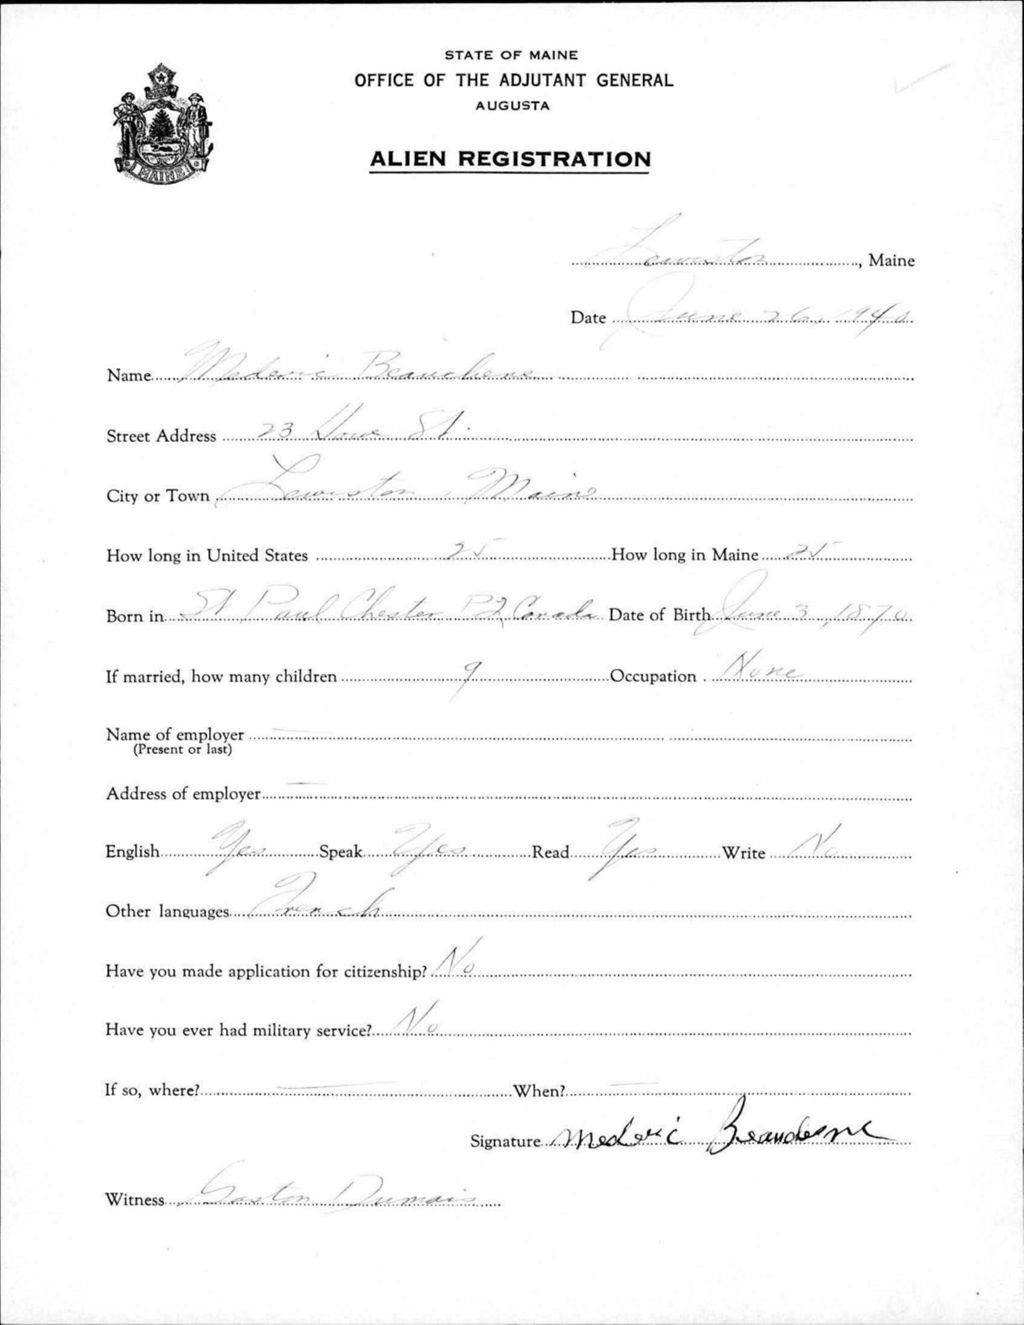 STATE OF MAINE
OFFICE OF THE ADJUTANT GENERAL
AUGUSTA
ALIEN REGISTRATION
MAINE
Lewiston, Maine
Date June 26, 1940
Name Mederic Beauchene
Street Address 23 Howe St.
City or Town Lewiston, Maine
How long in United States 25 How long in Maine 25
Born in St Paul Chester PQ Canada Date of Birth June 3, 1870
If married, how many children 9 Occupation None
Name of employer —
(Present or last)
Address of employer —
English Yes Speak Yes Read Yes Write No
Other languages French
Have you made application for citizenship? No
Have you ever had military service? No
If so, where? — When? —
Signature Mederic
Witness Gaston Dumais